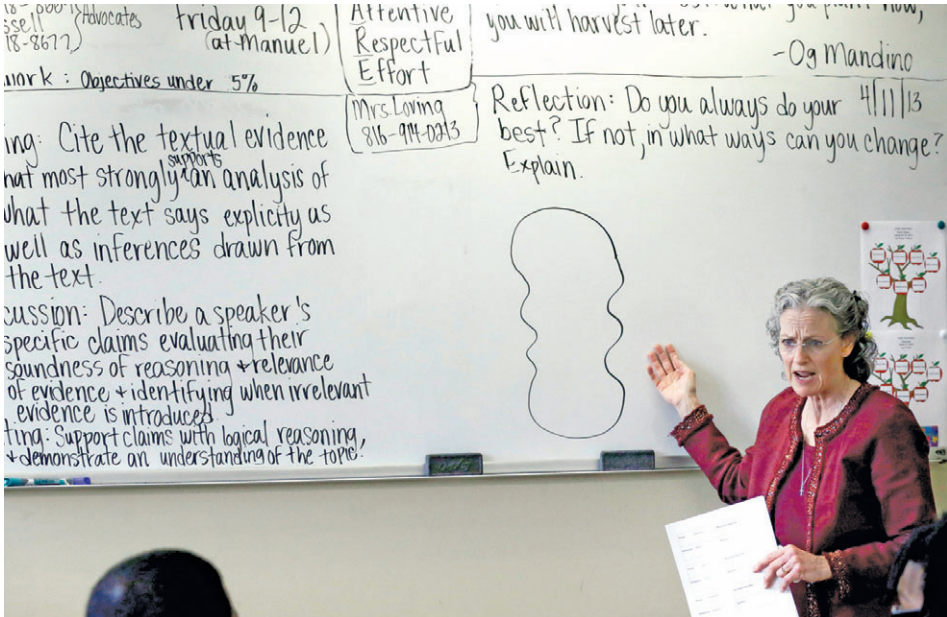 Advocates
ssell
18-8677
Friday 9-12
(at Manuel)
Attentive
Respectful
Effort
you will harvest later.
-Og Mandino
work: Objectives under 5%
Mrs. Loving
816-914-0213
Reflection: Do you always do your 4/11/13
best? If not, in what ways can you change?
Explain.
ing: Cite the textual evidence
hat most strongly supports an analysis of
what the text says explicity as
well as inferences drawn from
the text.
cussion: Describe a speaker's
specific claims evaluating their
soundness of reasoning + relevance
of evidence + identifying when irrelevant
evidence is introduced.
ting: Support claims with logical reasoning,
+ demonstrate an understanding of the topic.